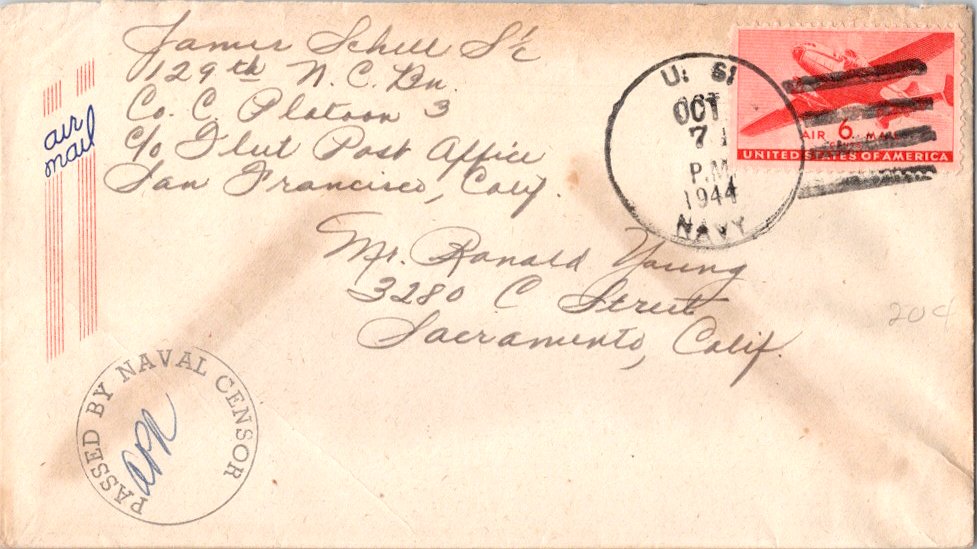 James Schell S1/c
129th N.C. Bn.
Co. C. Platoon 3
c/o Fleet Post Office
San Francisco, Calif.
air
mail
U. S.
OCT
7
P.M
1944
NAVY
AIR 6¢ MAIL
UNITED STATES OF AMERICA
Mr. Ronald Young
3280 C Street
Sacramento, Calif.
20¢
PASSED BY NAVAL CENSOR